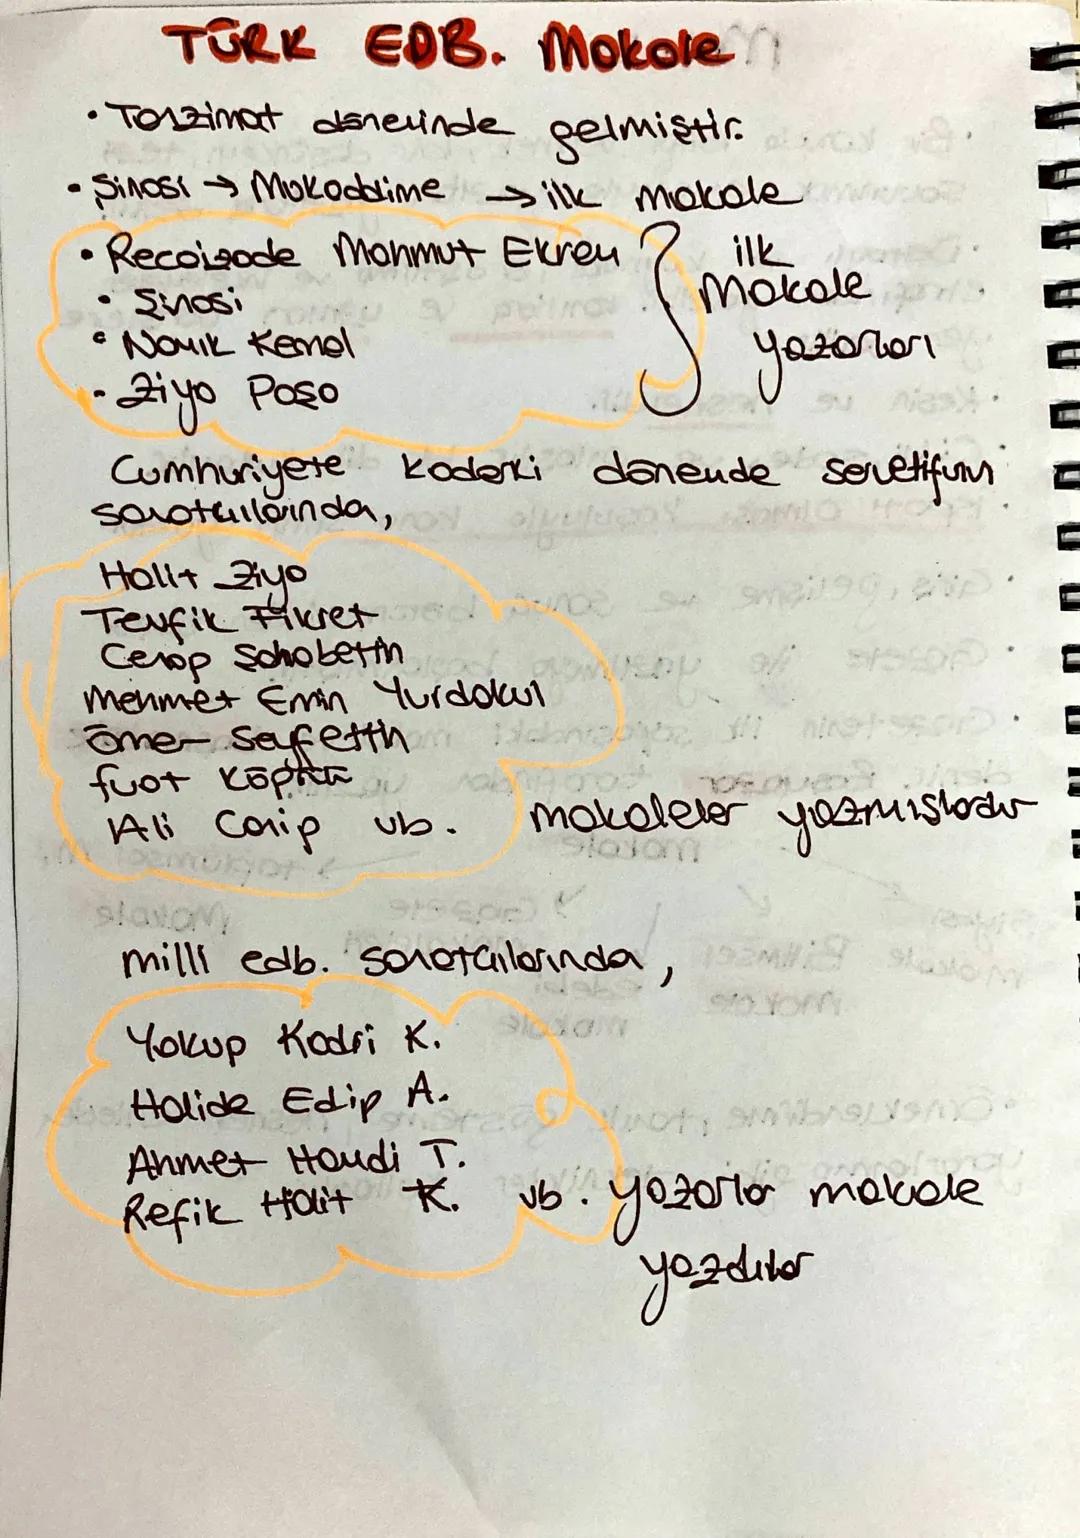 TÜRK EDB. Makale
• Tanzimat döneminde gelmiştir.
• Şinasi → Mukaddime → ilk makale
• Recaizade Mahmut Ekrem
• Şinasi
• Namık Kemal
• Ziya Paşa
ilk
Makale
yazarları
Cumhuriyete kadarki dönemde servetifunun
sanatçılarından,
Halit Ziya
Tevfik Fikret
Cenap Şahabettin
Mehmet Emin Yurdakul
Ömer Seyfettin
fuat Köprülü
Ali Canip vb. makaleler yazmışlardır
milli edb. sanatçılarından,
Yakup Kadri K.
Halide Edip A.
Ahmet Hamdi T.
Refik Halit K. vb. yazarlar makale
yazdılar